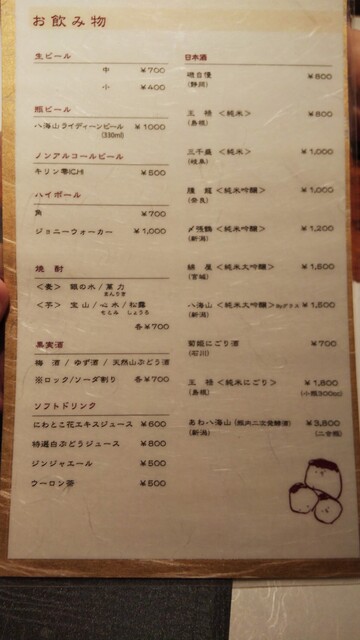 お飲み物
生ビール
中 ¥700
小 ¥400
瓶ビール
八海山ライディーンビール ¥1000
(330ml)
ノンアルコールビール
キリン零ICHI ¥500
ハイボール
角 ¥700
ジョニーウォーカー ¥1,000
焼酎
＜麦＞ 銀の水 / 萬力
まんりき
＜芋＞ 宝山 / 心水 / 松露
もとみ しょうろ
各¥700
果実酒
梅酒 / ゆず酒 / 天然山ぶどう酒
※ロック/ソーダ割り 各¥700
ソフトドリンク
にわとこ花エキスジュース ¥600
特選白ぶどうジュース ¥800
ジンジャエール ¥500
ウーロン茶 ¥500
日本酒
磯自慢 ¥800
(静岡)
王祿 ＜純米＞ ¥800
(島根)
三千盛 ＜純米＞ ¥1,000
(岐阜)
＜純米吟醸＞ ¥1,000
(奈良)
〆張鶴 ＜純米吟醸＞ ¥1,200
(新潟)
＜純米大吟醸＞ ¥1,500
(宮城)
八海山 ＜純米大吟醸＞ ¥1,500
(新潟)
菊姫にごり酒 ¥700
(石川)
王祿 ＜純米にごり＞ ¥1,800
(島根) (小瓶300cc)
あわ八海山 (瓶内二次発酵酒) ¥3,800
(新潟) (二合瓶)